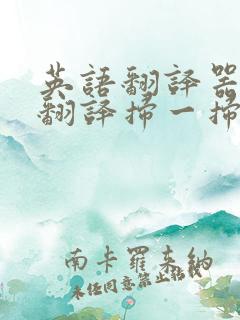 英語翻譯器
翻譯掃一掃
南卡羅來納
未任同意禁止轉載